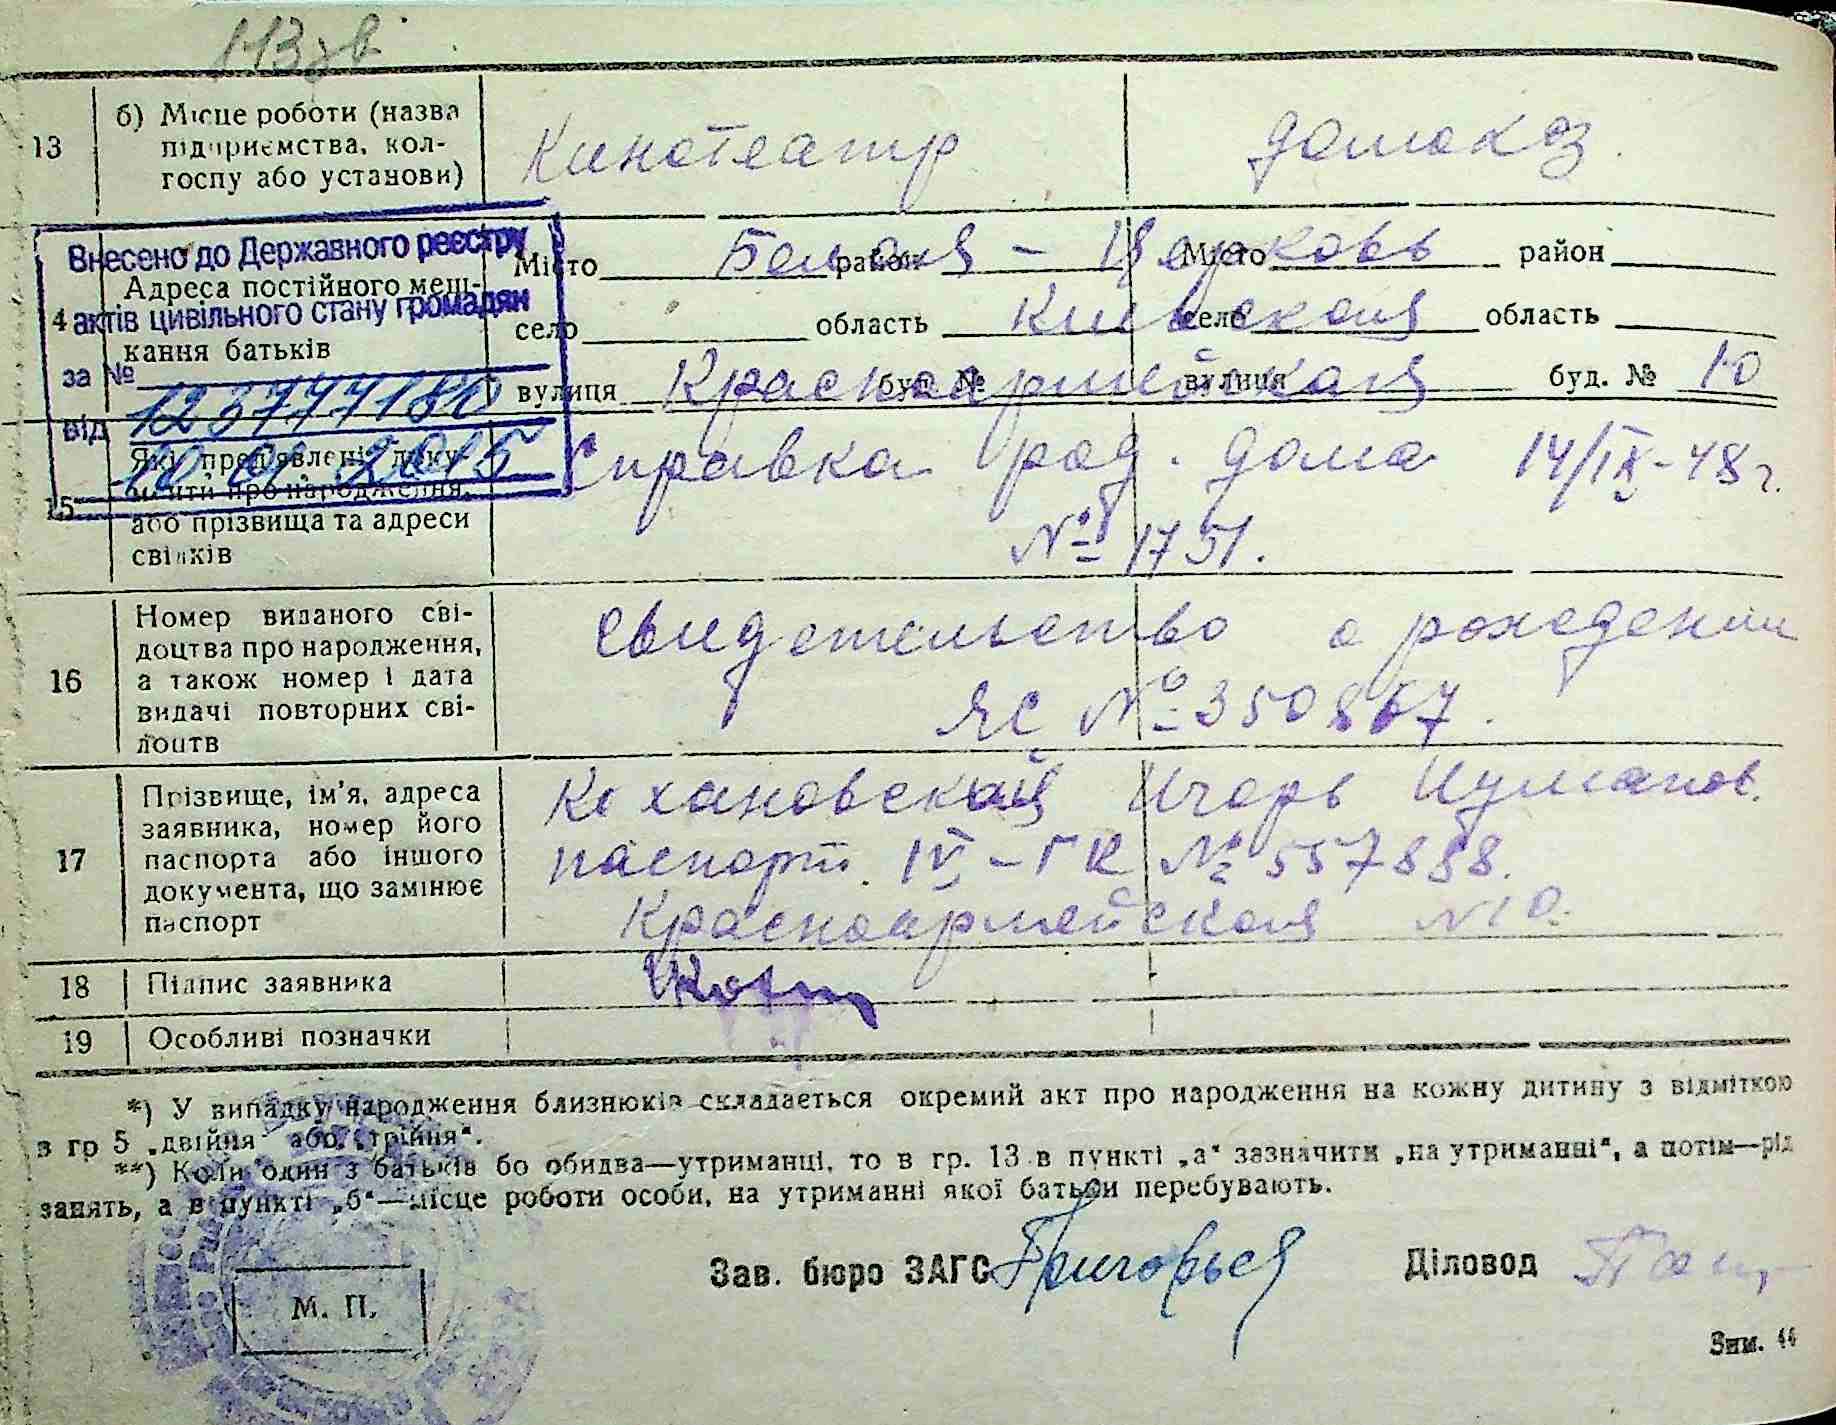 113 зв
13 б) Місце роботи (назва підприємства, колгоспу або установи)
Кинотеатр
домохоз.
Внесено до Державного реєстру
актів цивільного стану громадян
за № 123777180
від 2015
Адреса постійного мешкання батьків
Місто район Місто район
Белая - Церковь
село область село область
Киевская
вулиця буд. № вулиця буд. № 10
Красноармейская
15 Які пред'явлені документи про народження, або прізвища та адреси свідків
Справка род. дома 14/IX-48 г.
№ 1751.
16 Номер виданого свідоцтва про народження, а також номер і дата видачі повторних свідоцтв
Свидетельство о рождении
ЯС № 350867.
17 Прізвище, ім'я, адреса заявника, номер його паспорта або іншого документа, що замінює паспорт
Кохановский Игорь
паспорт. IV-ГК № 557888.
Красноармейская №10.
18 Підпис заявника
19 Особливі позначки
*) У випадку народження близнюків складається окремий акт про народження на кожну дитину з відміткою
в гр 5 „двійня" або „трійня".
**) Коли один з батьків бо обидва—утриманці, то в гр. 13 в пункті „а" зазначити „на утриманні", а потім—рід
занять, а в пункті „б"—місце роботи особи, на утриманні якої батьки перебувають.
Зав. бюро ЗАГС Діловод
М. П.
Зим. 44